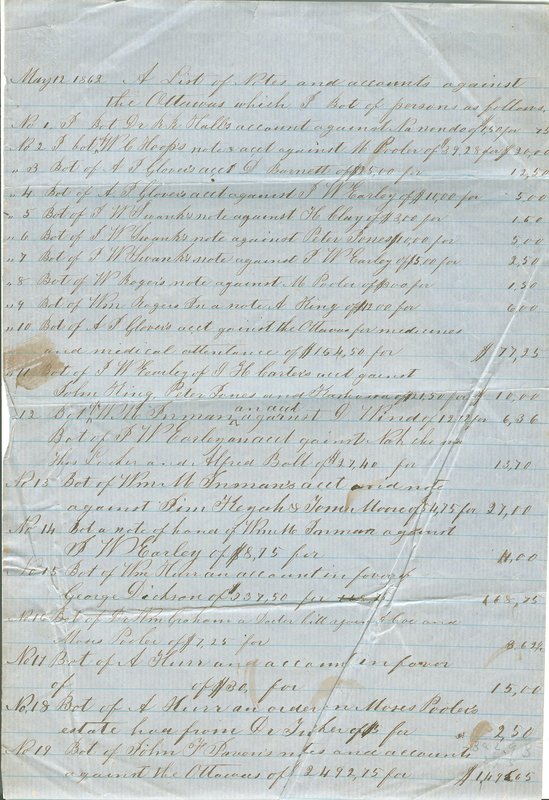 May 12 1862 A List of Notes and accounts against
the Ottawas which I Bot of persons as follows.
No 1. I Bot Dr Hall's account against of for
No 2 I bot W. C. Hoop's note & acct against M Pooler of 39.28 for $20.00
" 3 Bot of A J Glover's acct D Barnett of $25.00 for 12,50
" 4 Bot of A J Glover's acct against J W Earley of $10,00 for 5,00
" 5 Bot of J W Swank's note against H Clay of $3,00 for 1.50
" 6 Bot of J W Swank's note against Peter Jones $10,00 for 5,00
" 7 Bot of J W Swank's note against J W Earley of $5.00 for 2,50
" 8 Bot of W Roger's note against M Pooler of for 1,50
" 9 Bot of Wm Rogers a note A King of $12.00 for 6,00
" 10 Bot of A J Glover's acct gainst the Ottawas for medicines
and medical attentance of $154,50 for $77,25
" 11 Bot of J W Earley of J H Carter's acct gainst
John King Peter Jones and of 21,50 for $10,00
" 12 Bot of W M Inman an acct against D Wind of for 6,36
Bot of J W Earley an acct gainst
Locker and Alfred Bolt of $27,40 for 13,70
No 13 Bot of Wm M Inman's acct and note
against Jim Keyah & Tom Moore of 54,75 for 27,00
No 14 Bot a note of hand of Wm M Inman against
J W Earley of $8,75 for 4,00
No 15 Bot of Wm Hurr an account in favor of
George Dickson of $237,50 for 118,75
No 16 Bot of Dr Wm Graham a Doctor bill against and
Moses Pooler of $7,25 for 3.62½
No 17 Bot of A Hurr and account in favor
of of $30, for 15,00
No. 18 Bot of A Hurr an order on Moses Pooler's
estate had from Dr of $5 for 2,50
No 19 Bot of John F Lawson's notes and accounts
against the Ottawas of 2492,75 for $1,495.65